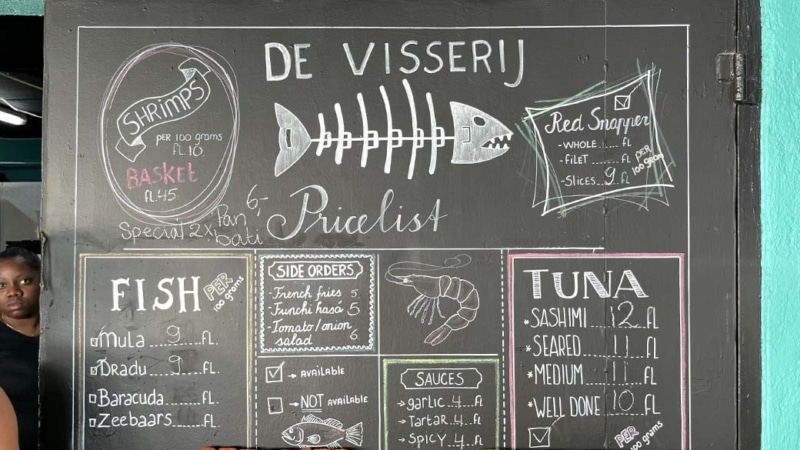 DE VISSERIJ
SHRIMPS
PER 100 grams
FL.10,
BASKET
FL.45
Special 2x Pan bati 6,-
Pricelist
Red Snapper
- WHOLE......FL
- FILET ........FL
- SLICES..9..FL
PER 100 gram
FISH PER 100 grams
Mula 9 FL.
Dradu 9 FL.
Baracuda......FL.
Zeebaars......FL.
SIDE ORDERS
- French fries 5
- Funchi hasá 5
- Tomato/onion salad 6
→ AVAILABLE
→ NOT AVAILABLE
SAUCES
→ garlic..4..FL
→ Tartar..4..FL
→ SPICY..4..FL
TUNA
*SASHIMI 12 FL
*SEARED 11 FL
*MEDIUM 11 FL
*WELL DONE 10 FL
PER 100 grams